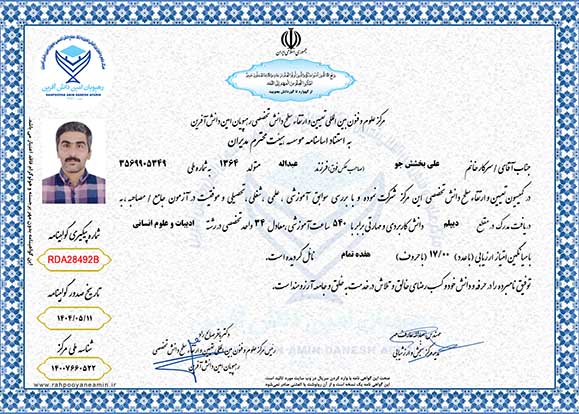 رهپویان امین دانش آفرین
RAHPOOYAN AMIN DANESH AFARIN
جمهوری اسلامی ایران
ز گهواره تا گور دانش بجوی
مرکز علوم و فنون بین المللی تعیین و ارتقاء سطح دانش تخصصی رهپویان امین دانش آفرین
به استناد اساسنامه موسسه هیئت محترم مدیران
جناب آقای / سرکار خانم علی بخشش جو (صاحب عکس فوق) فرزند عبداله متولد ۱۳۶۴ به شماره ملی ۳۵۶۹۹۰۵۳۴۹
در کمیسیون تعیین و ارتقاء سطح دانش تخصصی این مرکز شرکت نموده و با بررسی سوابق آموزشی ، علمی ، شغلی ، تحصیلی و موفقیت در آزمون جامع / مصاحبه ، به
دریافت مدرک در مقطع دیپلم دانش کاربردی و مهارتی برابر با ۵۴۰ ساعت آموزشی معادل ۳۴ واحد تخصصی در رشته ادبیات و علوم انسانی
با میانگین امتیاز ارزیابی (با عدد) ۱۷/۰۰ (با حروف) هفده تمام نائل گردیده است.
توفیق نامبرده را در حرفه و دانش خود و کسب رضای خالق و تلاش در خدمت به خلق و جامعه آرزومند است.
شماره پیگیری گواهینامه
RDA28492B
تاریخ صدور گواهینامه
۱۴۰۴/۰۵/۱۱
شناسه ملی مرکز
۱۴۰۰۷۶۶۰۵۲۲
رئیس مرکز علوم و فنون بین المللی تعیین و ارتقاء سطح دانش تخصصی
رهپویان امین دانش آفرین
www.rahpooyaneamin.ir
صحت این گواهی نامه با وارد کردن سریال در وب سایت مورد تائید است.